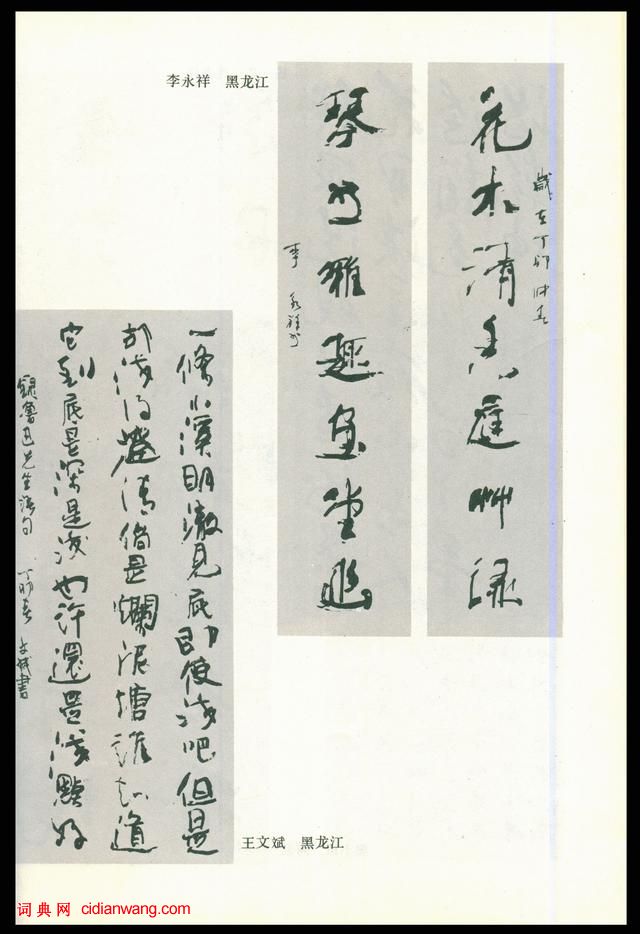 李永祥 黑龙江
花木清香庭艸绿
歲在丁卯仲春
琴书雅趣画堂幽
李永祥书
一條小溪明澈見底即使浅吧但是
却浅得澄清倘是爛泥塘誰知道
它到底是深是浅也许還是浅點好
録魯迅先生語句 丁卯春 文斌書
王文斌 黑龙江
词典网 cidianwang.com